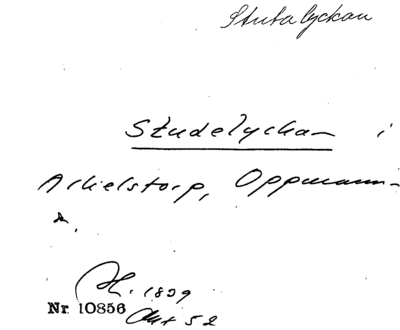 Stutalyckan
Studelyckan i
Arkelstorp, Oppmann-
a.
H. 1839
Nr 10856
Akt 52